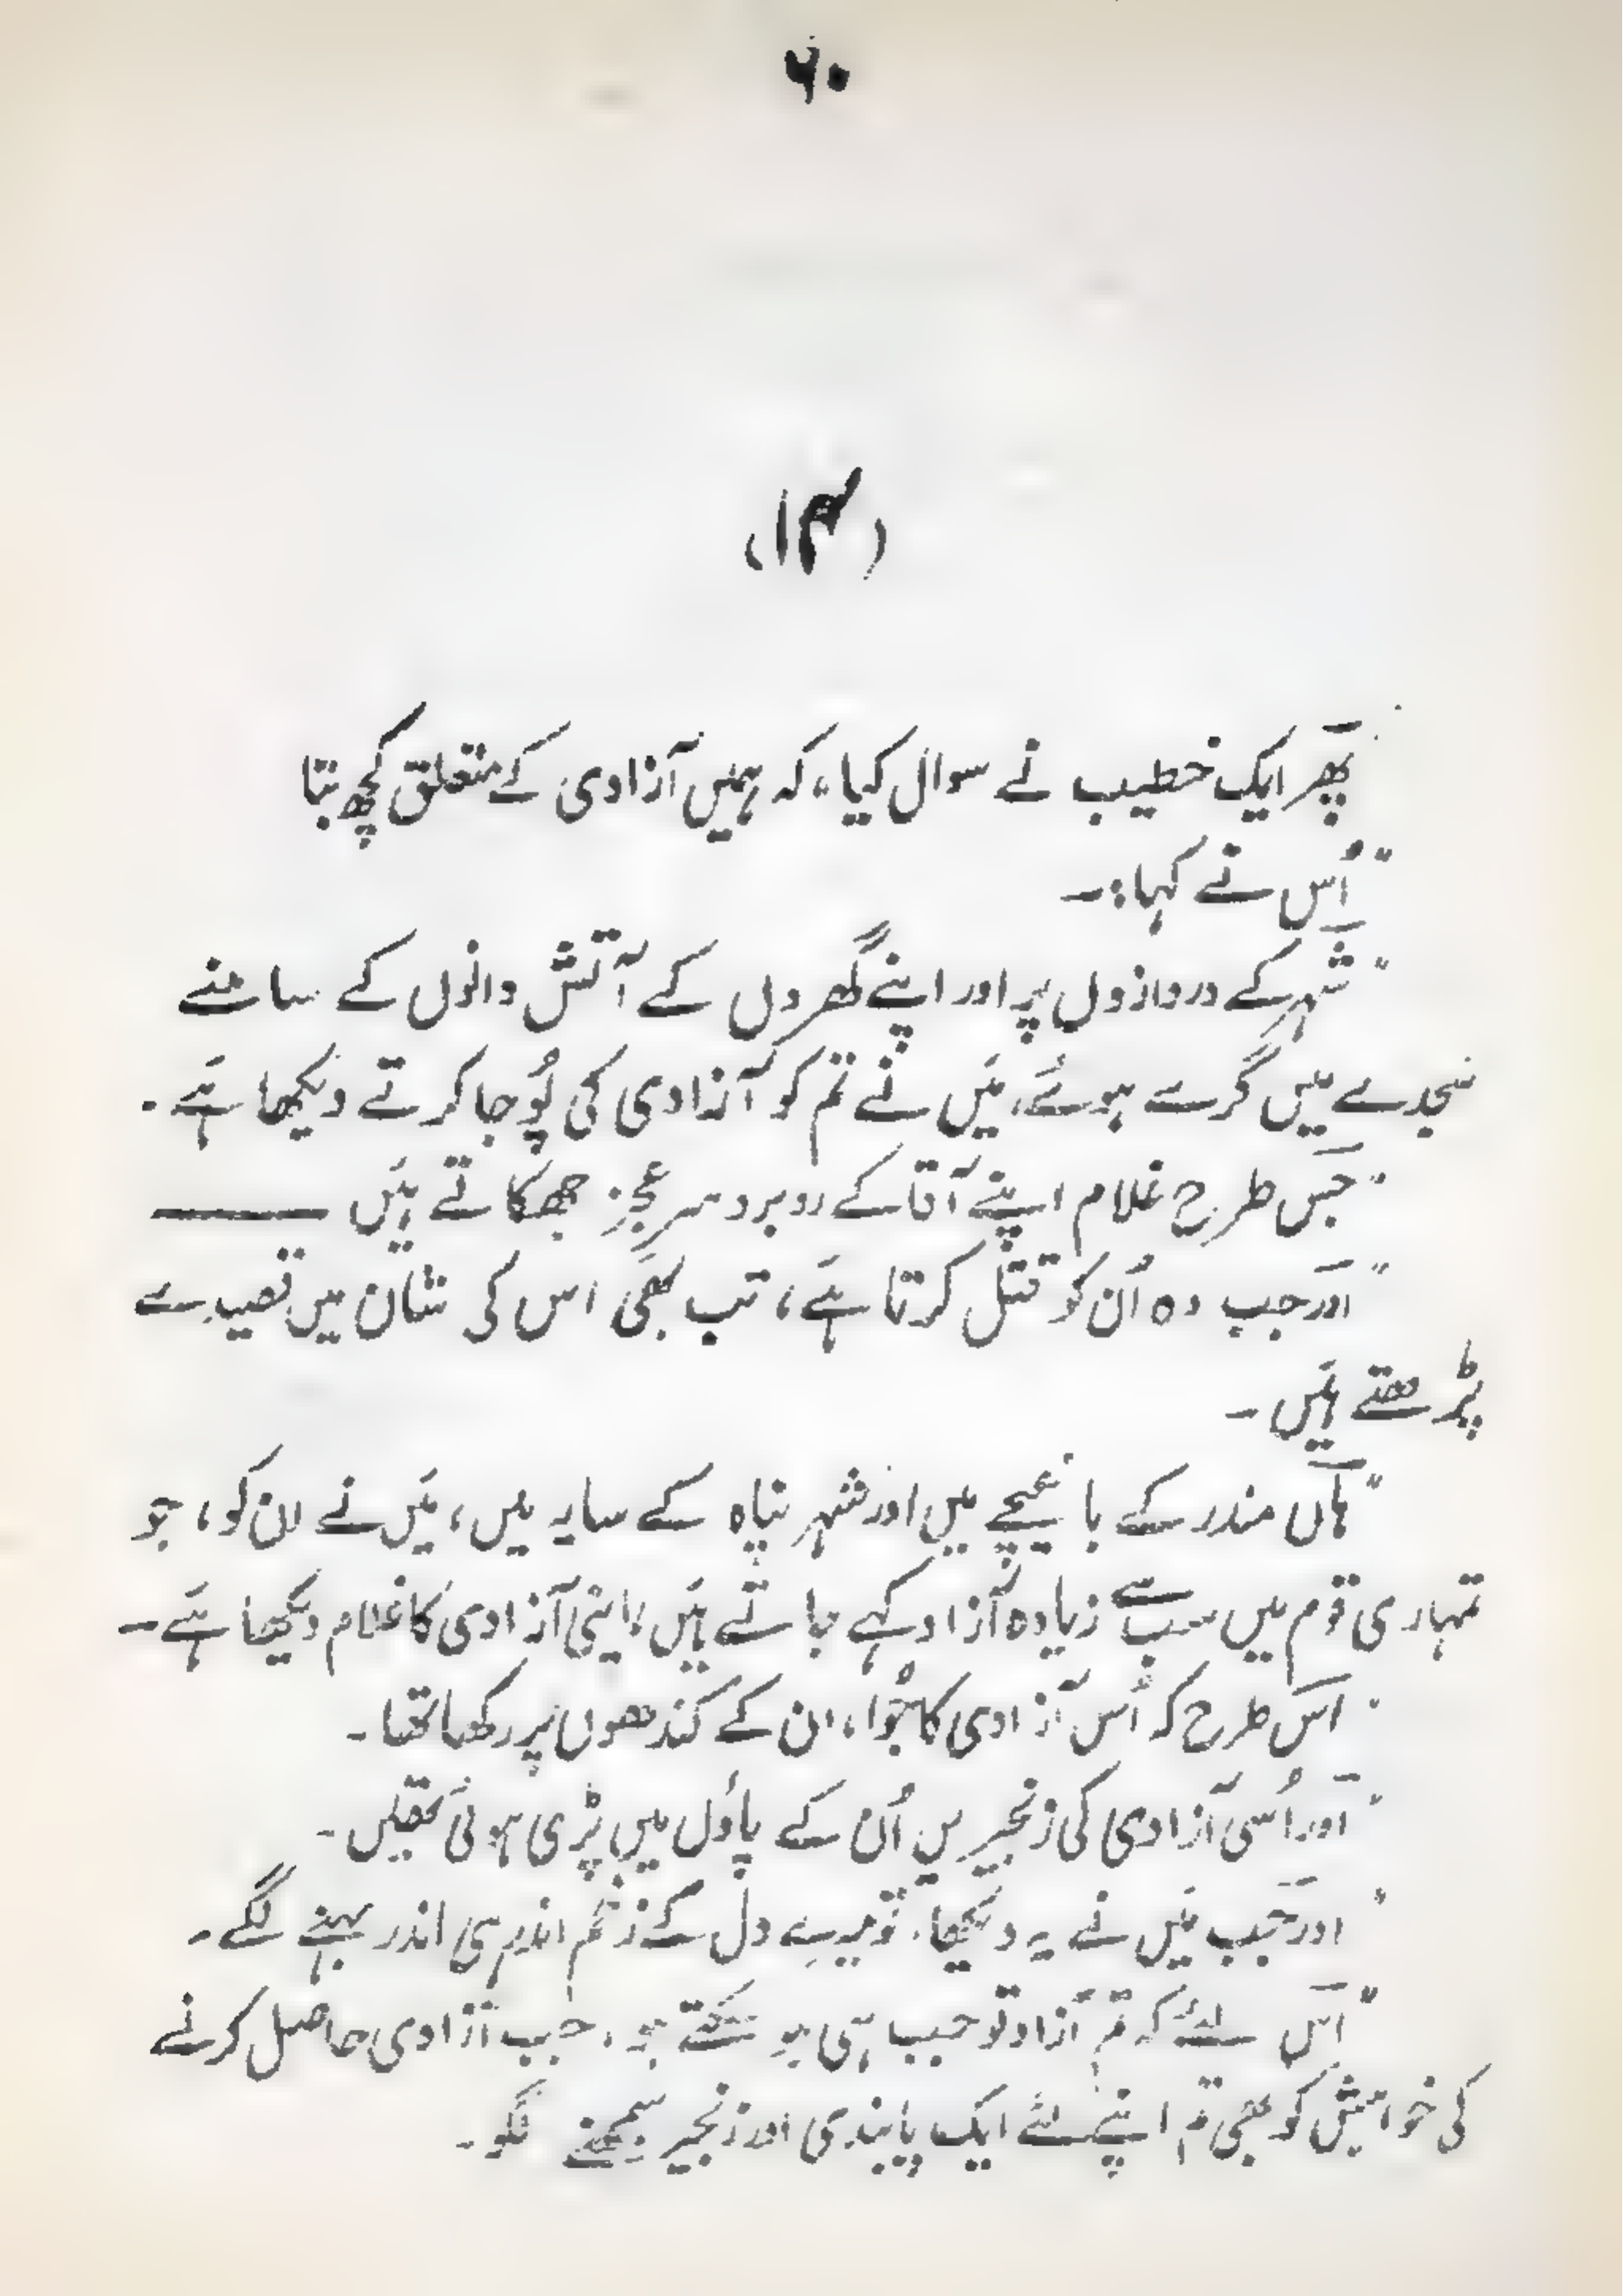 ۶۰
(۱۴)
پھر ایک خطیب نے سوال کیا، کہ ہمیں آزادی کے متعلق کچھ بتا
"اُس نے کہا:۔
"شہر کے دروازوں پر اور اپنے گھروں کے آتش دانوں کے سامنے
سجدے میں گرے ہوئے، مَیں نے تم کو آزادی کی پُوجا کرتے دیکھا ہے۔
"جس طرح غلام اپنے آقا کے روبرو سرِ عجز جھکاتے ہَیں ———
"اور جب وہ اُن کو قتل کرتا ہَے، تب بھی اس کی شان میں قصیدے
پڑھتے ہَیں۔
"ہاں مندر کے باغیچے میں اور شہر پناہ کے سایہ میں، مَیں نے ان کو، جو
تمہاری قوم میں سب سے زیادہ آزاد کہے جاتے ہَیں، اپنی آزادی کا غلام دیکھا ہَے۔
"اس طرح کہ اُس آزادی کا جُوا، ان کے کندھوں پر رکھا تھا۔
"اور اُسی آزادی کی زنجیریں اُن کے پاؤں میں پڑی ہوئی تھیں۔
"اور جب مَیں نے یہ دیکھا، تو میرے دل کے زخم اندر ہی اندر بہنے لگے۔
"اس لئے کہ تم آزاد تو جب ہی ہو سکتے ہو، جب آزادی حاصل کرنے
کی خواہش کو بھی تم اپنے لئے ایک پابندی اور زنجیر سمجھنے لگو۔